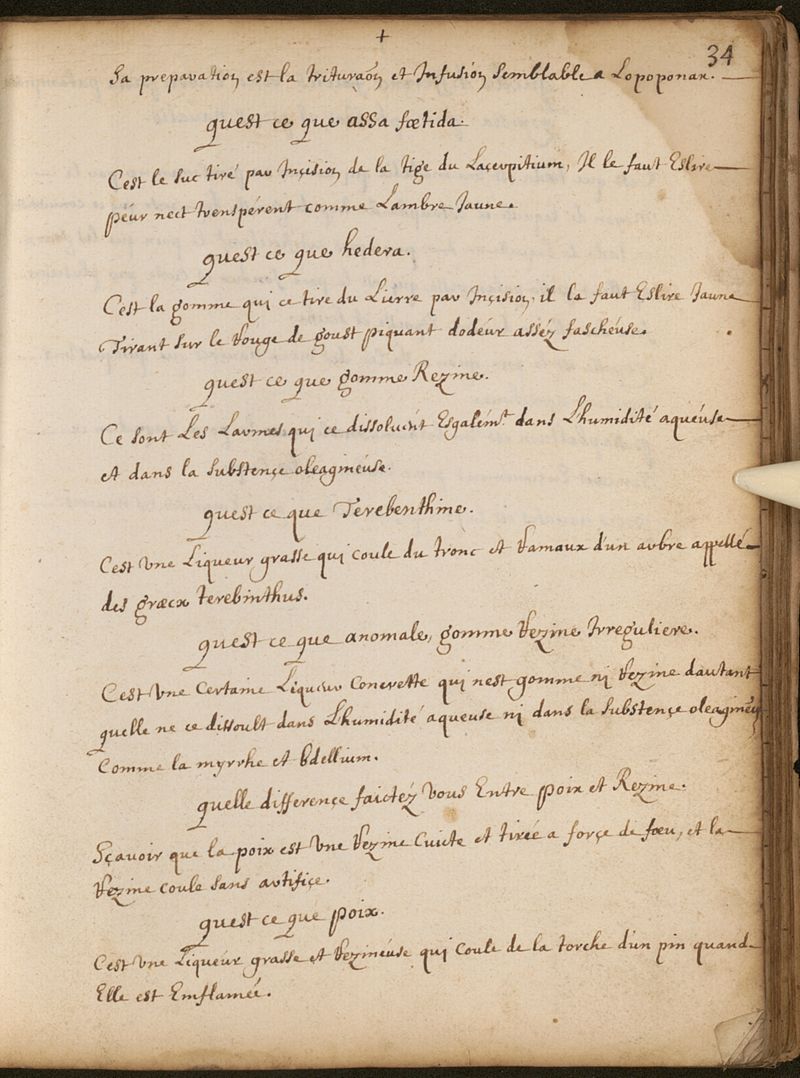 +
34
Sa preparation est la trituraõn et Infusion semblable a Lopoponax.
quest ce que assa fœtida.
Cest le suc tiré par Inçision de la tige du Laçerpitium, Il le faut Eslire
péur nect trensperent comme Lambre Jaune.
quest ce que hedera.
Cest la gomme qui ce tire du Lierre par Inçision, il la faut Eslire Jaune
Tirant sur le Rouge de goust piquant dodéur asséz faschéuse.
quest ce que gomme Rezine.
Ce sont Les Larmes qui ce dissoluent Esgalemt. dans Lhumidité aquéuse
et dans la substençe oleaginéuse.
quest ce que Terebenthine.
Cest Vne Liqueur grasse qui coule du tronc et Ramaux d'un arbre appellé
des græcx terebinthus.
quest ce que anomale, gomme Rezine Irreguliere.
Cest Vne Certaine Liqueur Concrette qui nest gomme ni Rezine dautant
quelle ne ce dissoult dans Lhumidité aqueuse ni dans la substençe oleagineuse
Comme la myrrhe et bdellium.
quelle differençe faictéz Vous Entre poix et Rezine.
Sçavoir que la poix est Vne Rezine Cuicte et tirée a forçe de fœu, et la
Rezine coule sans artifiçe.
quest ce que poix.
Cest Vne Liqueur grasse et Rezinéuse qui Coule de la torche d'un pin quand
Elle est Emflamée.